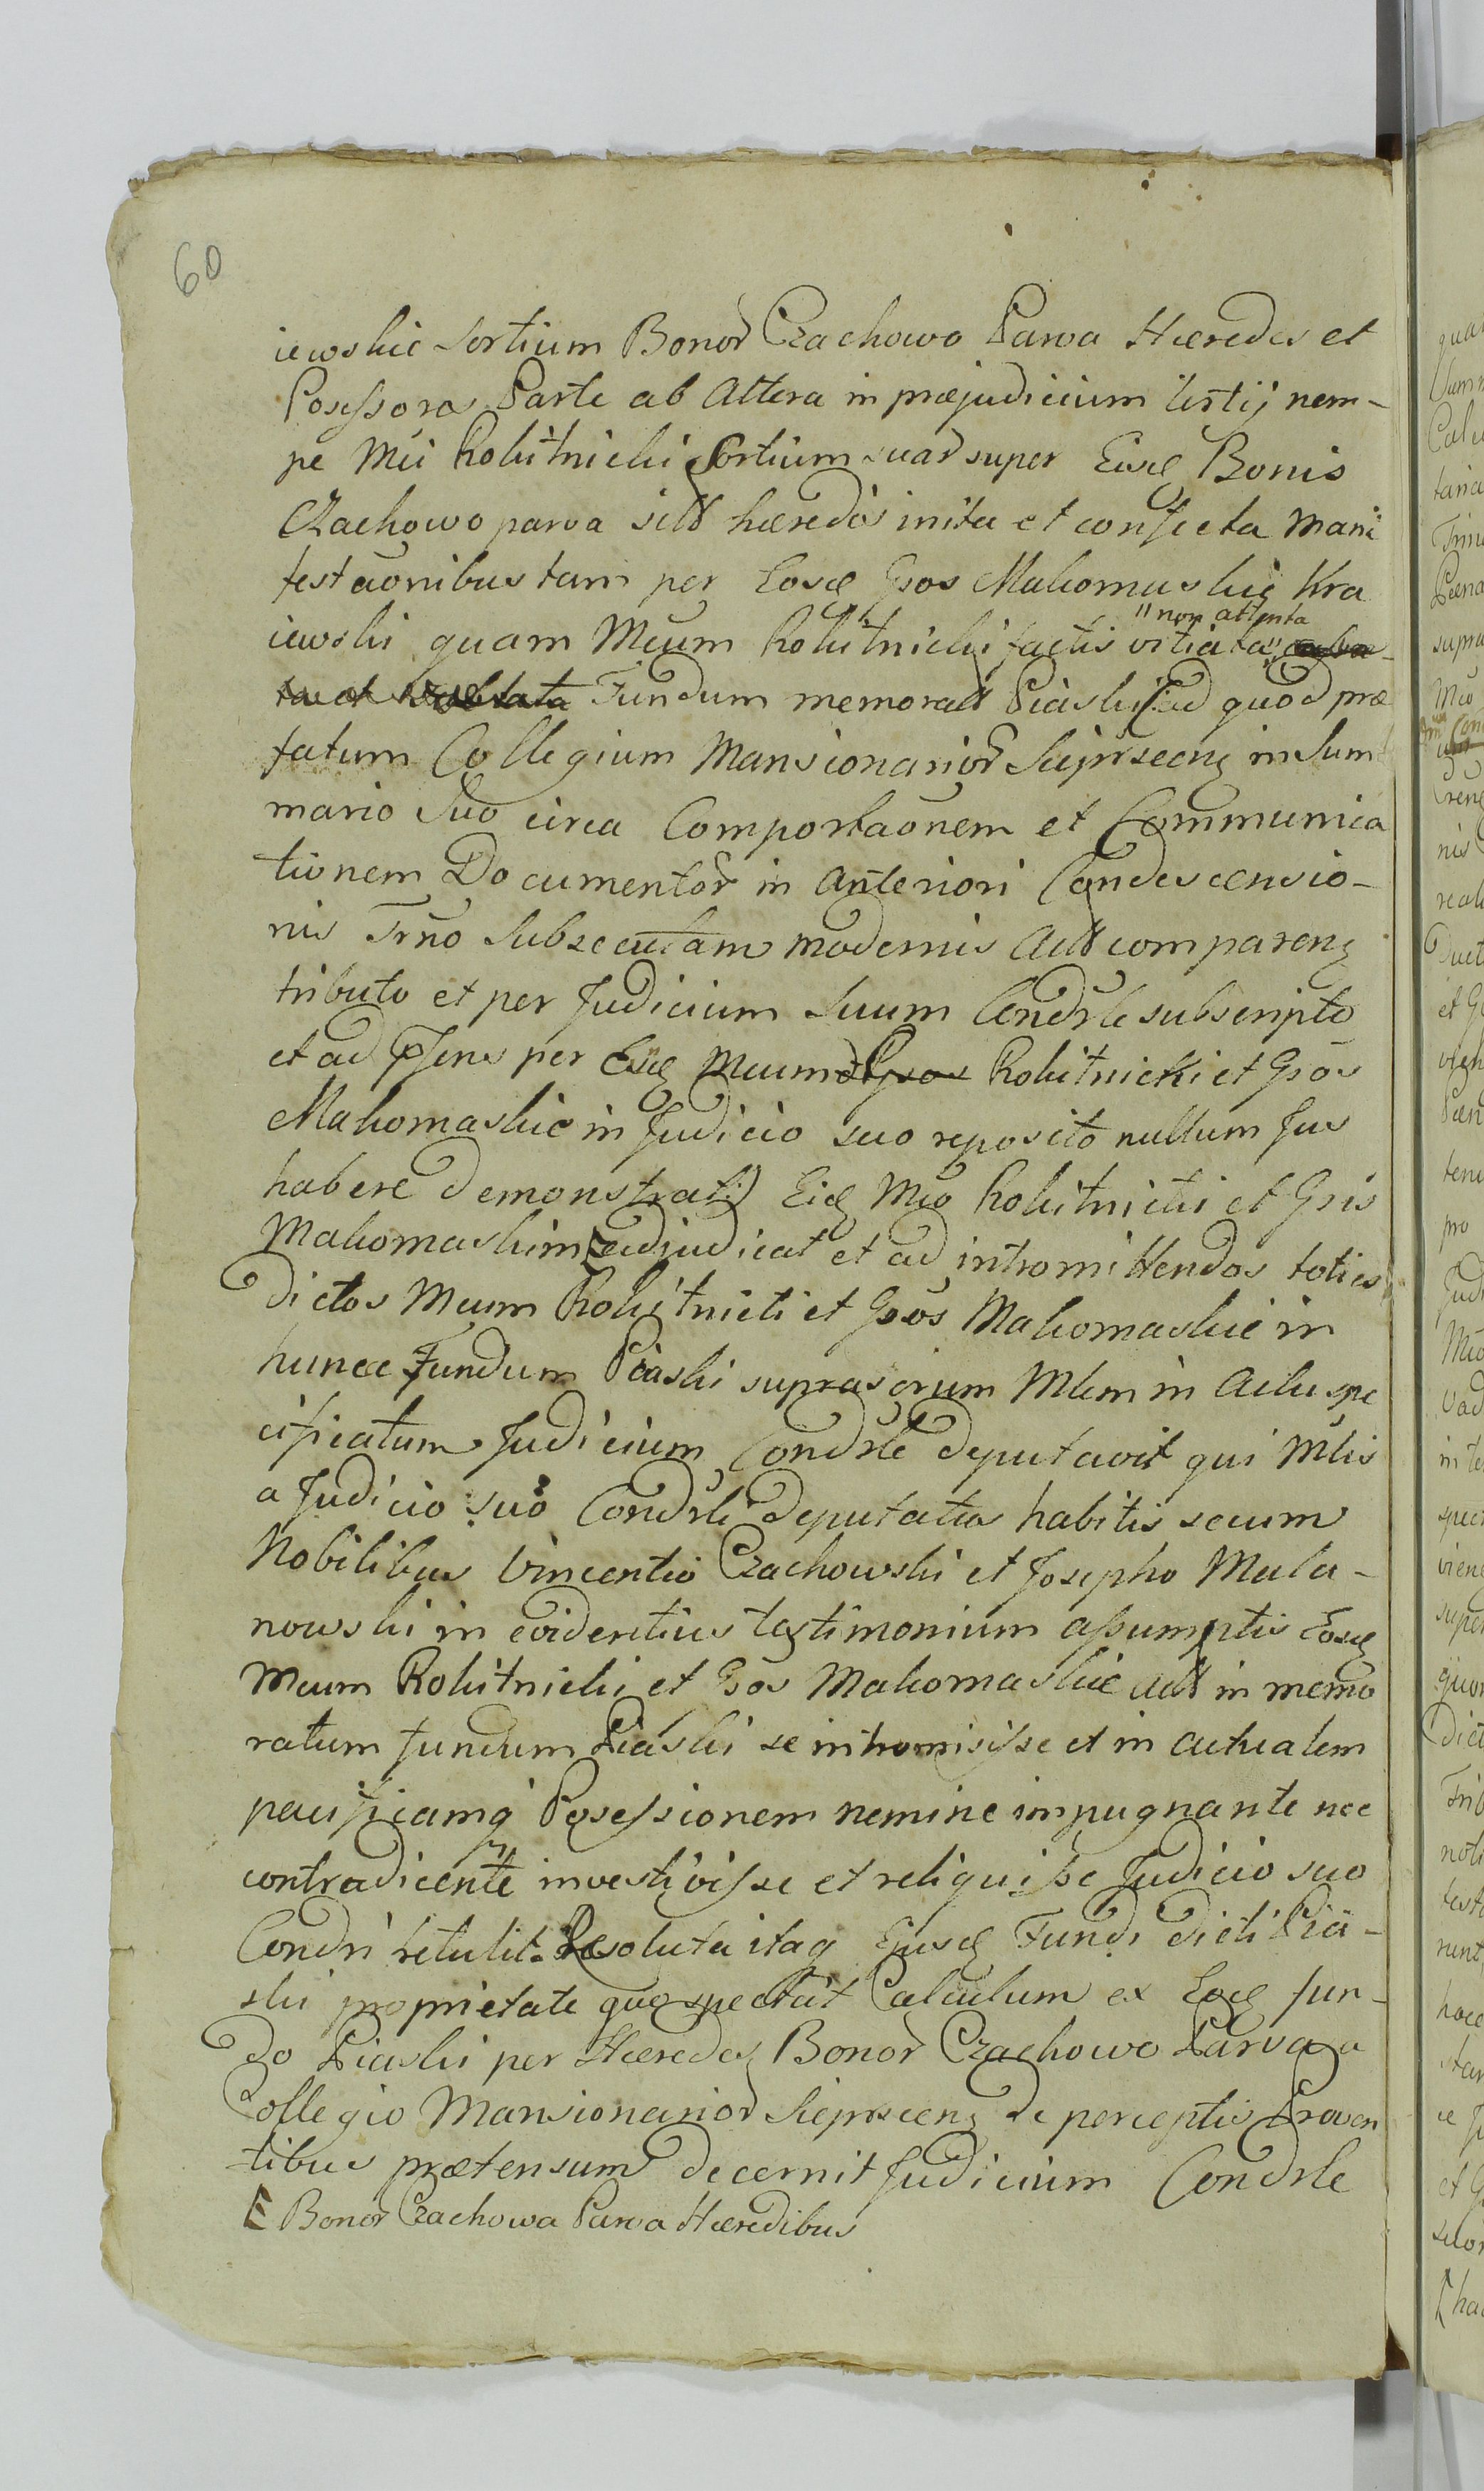 60
iewskie Sortium Bonor Czachowo Parva Hæredes et
Possessores Parte ab Altera in præjudicium tertij nem-
pe Mci Rokitnicki Sortium suar super Eisd Bonis
Czachowo parva sitt hæredis inita et confecta Mani
festaōnibus tam per Eosd Gsos Makomaskie Kra
iewski quam Mcum Rokitnicki factis vitiata
" non attenta
Fundum memoratt Piaski (ad quod præ
fatum Collegium Mansionarior Sieprscens in Sum
mario Suo circa Comportaōnem et Communica
tionem Documentor in Anteriori Condescensio-
nis Trno Subsecutam modernis Actt comparens
tributo et per Judicium Suum Condrle subscripto
et ad præsens per Eosd Mcum et Gsos Rokitnicki et Gsos
Makomaskie in Judicio suo reposito nullum Jus
habere demonstrat:) Eid Mco Rokitnicki et Gsis
Makomaskim E adjudicat et ad intromittendos toties
dictos Mcum Rokitnicki et Gsos Makomaskie in
hunce Fundum Piaski suprasērium Mlem in Actu spe
cificatum Judicium Condrle deputavit qui Mlis
a Judicio suo Condrli deputatus habitis secum
Nobilibus Vincentio Czachowski et Josepho Mala-
nowski in evidentius testimonium assumptis Eosd
Mcum Rokitnicki et Gsos Makomaskie Actt in memo
ratum fundum Piaski se intromisisse et in actualem
pacificamq Possessionem nemine impugnante nec
contradicente investivisse et reliquisse Judicio suo
Condri retulit. Resoluta itaq Ejusd Fundi dicti Pia-
ski proprietate quo spectat Calculum ex Eod fun-
do Piaski per Hæredes Bonor Czachowo Parva a
Collegio Mansionarior Sieprscens de perceptis Proven
tibus prætensum decernit Judicium Condrle
E Bonor Czachowa Parva Hæredibus